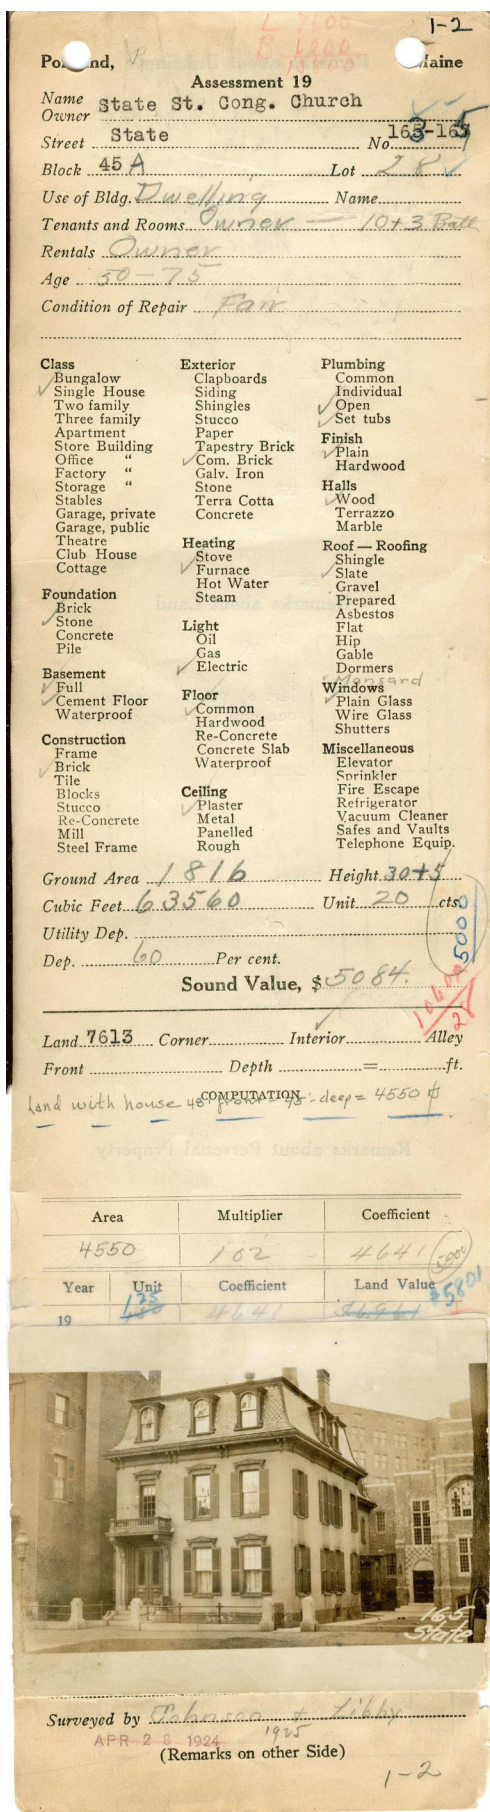 1-2
L 7600
B 6200
Portland, Maine
Assessment 19
Name
Owner State St. Cong. Church
Street State No. 163-165
Block 45 A Lot 28
Use of Bldg. Dwelling Name
Tenants and Rooms Owner — 10+3 Bath
Rentals Owner
Age 50-75
Condition of Repair Fair
Class
Bungalow
Single House
Two family
Three family
Apartment
Store Building
Office "
Factory "
Storage "
Stables
Garage, private
Garage, public
Theatre
Club House
Cottage
Foundation
Brick
Stone
Concrete
Pile
Basement
Full
Cement Floor
Waterproof
Construction
Frame
Brick
Tile
Blocks
Stucco
Re-Concrete
Mill
Steel Frame
Exterior
Clapboards
Siding
Shingles
Stucco
Paper
Tapestry Brick
Com. Brick
Galv. Iron
Stone
Terra Cotta
Concrete
Heating
Stove
Furnace
Hot Water
Steam
Light
Oil
Gas
Electric
Floor
Common
Hardwood
Re-Concrete
Concrete Slab
Waterproof
Ceiling
Plaster
Metal
Panelled
Rough
Plumbing
Common
Individual
Open
Set tubs
Finish
Plain
Hardwood
Halls
Wood
Terrazzo
Marble
Roof — Roofing
Shingle
Slate
Gravel
Prepared
Asbestos
Flat
Hip
Gable
Dormers
Mansard
Windows
Plain Glass
Wire Glass
Shutters
Miscellaneous
Elevator
Sprinkler
Fire Escape
Refrigerator
Vacuum Cleaner
Safes and Vaults
Telephone Equip.
Ground Area 1816 Height 30+5
Cubic Feet 63560 Unit 20 cts.
Utility Dep.
5000
Dep. 60 Per cent.
Sound Value, $ 5084.
28
Land 7613 Corner Interior Alley
Front Depth = ft.
COMPUTATION
Land with house 48' front - 95' deep = 4550
Area Multiplier Coefficient
4550 102 4641
Year Unit Coefficient Land Value $5801
19 125 4641 $6961
165
State
Surveyed by Johnson + Libby
APR 28 1924 1925
(Remarks on other Side)
1-2